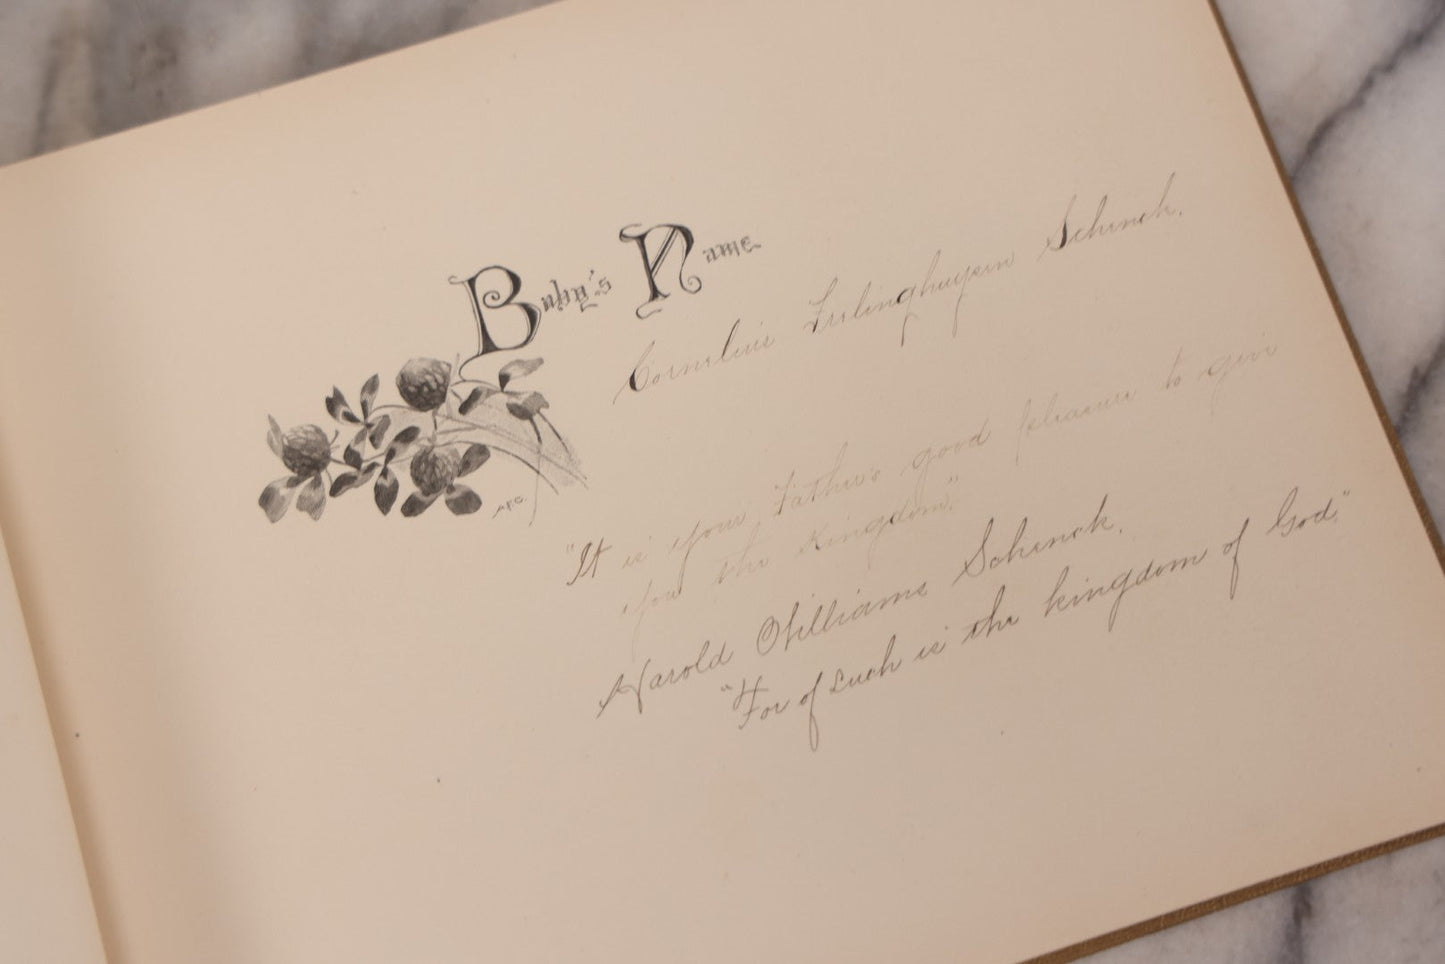 Baby's Name
Cornelius Frelinghuysen Schenck.
"It is your Father's good pleasure to give
you the Kingdom."
Harold Williams Schenck.
"For of such is the kingdom of God."